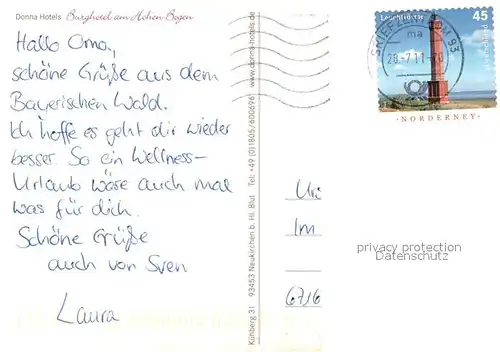 Donna Hotels Burghotel am Hohen Bogen
Hallo Oma,
schöne Grüße aus dem
Bayerischen Wald.
Ich hoffe es geht dir wieder
besser. So ein Wellness-
Urlaub wäre auch mal
was für dich.
Schöne Grüße
auch von Sven
Laura
Kühberg 31 93453 Neukirchen b. Hl. Blut Tel: +49 (0)1805/600696 www.donna-hotels.de
Leuchttürme 45
Deutschland
BRIEFZENTRUM 93
ma
28.-7.11-
-NORDERNEY-
Im
6716
privacy protection
Datenschutz